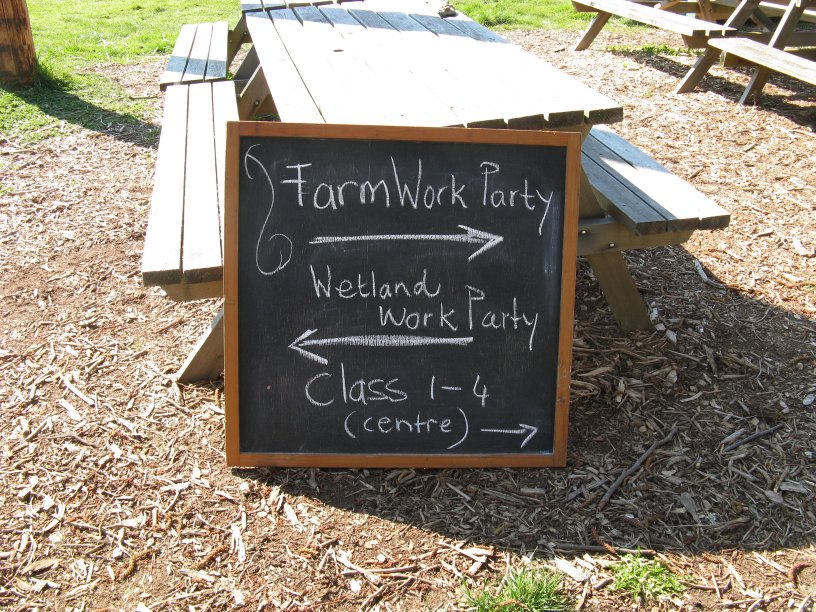 Farm Work Party
Wetland
Work Party
Class 1-4
(centre)